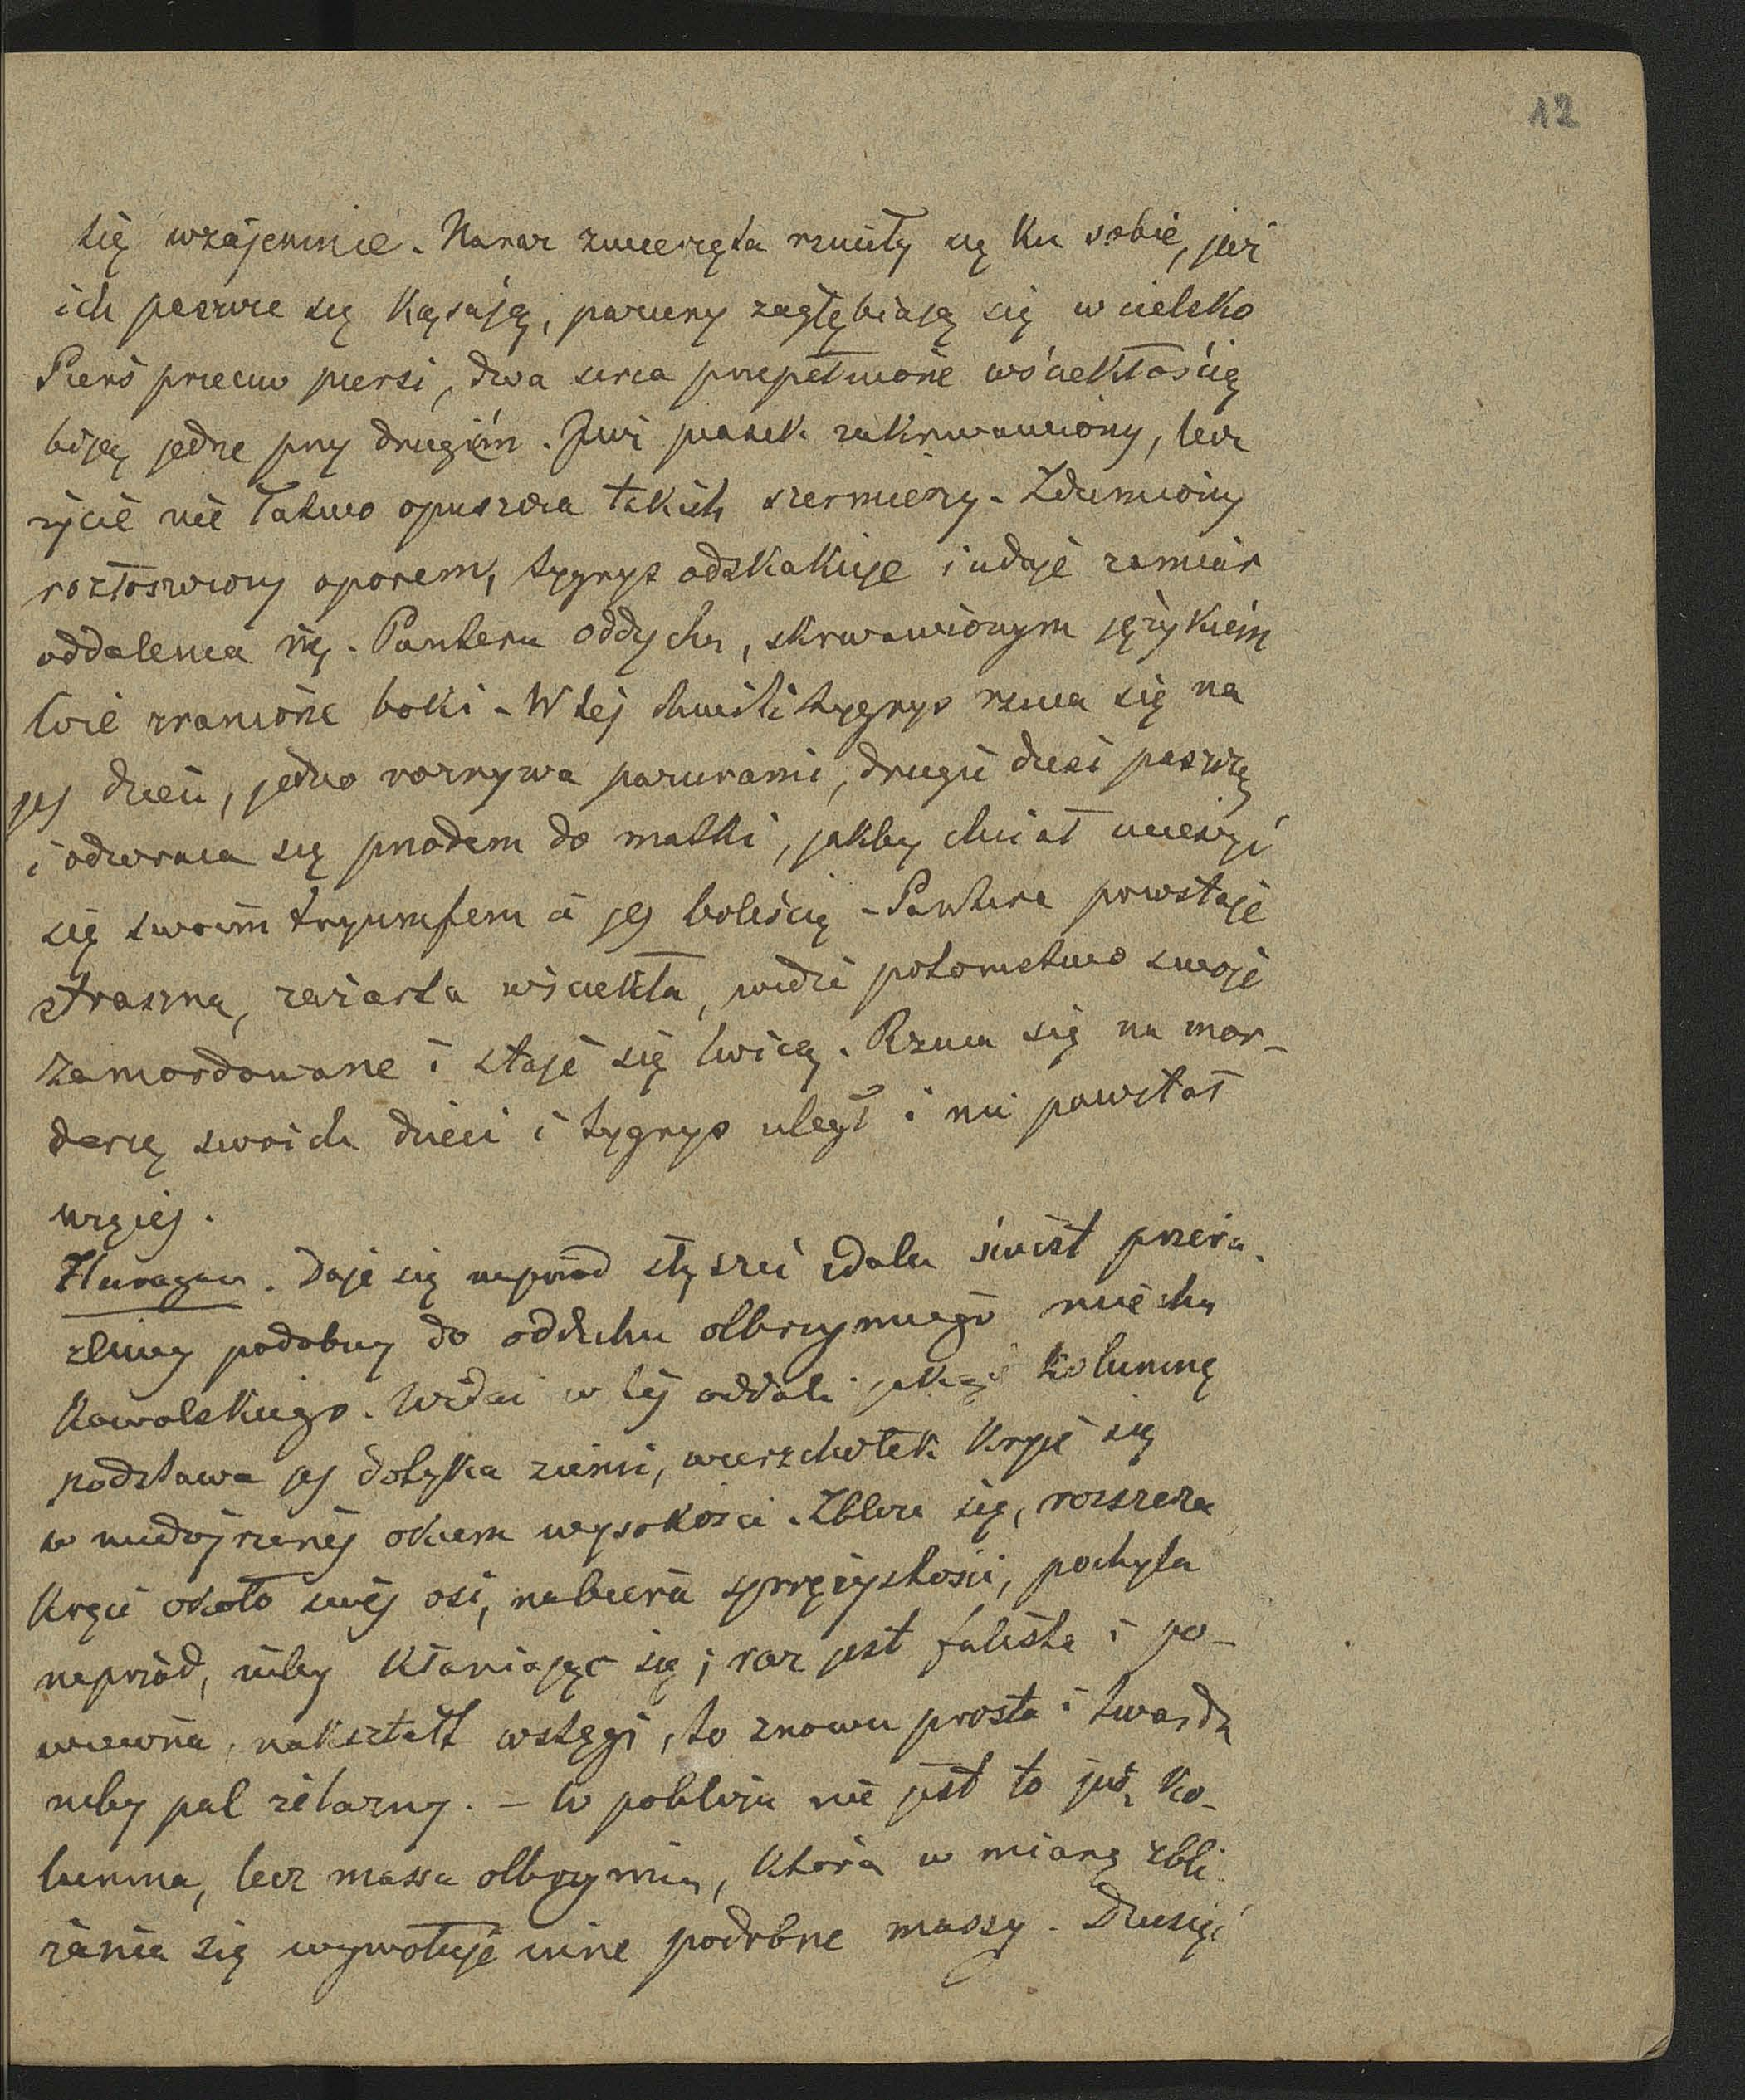 12
się wzajemnie. Naraz zwierzęta rzuciły się ku sobie, już
ich paszcze się kąsają, pazury zagłębiają się w cielsko
Pierś przeciw piersi, dwa serca przepełnione wściekłością
biją jedne przy drugiém. Już piasek zakrwawiony, lecz
życie nie łatwo opuszcza takich szermierzy. Zdumiony
rozłoszczony oporem, tygrys odskakuje i udaje zamiar
oddalenia się. Pantera oddycha, skrwawionym językiem
liże zranione boki. W tej chwili tygrys rzuca się na
jej dzieci, jedno rozrywa pazurami, drugie dusi paszczą
i odwraca się przodem do matki, jakby chciał ucieszyć
się swoim tryumfem a jej boleścią - Pantera powstaje
straszna, zażarta wściekła, widzi potomstwo swoje
zamordowane i staje się lwicą. Rzuca się na mor-
dercę swoich dzieci i tygrys uległ i nie powstał
więcej.
Huragan. Daje się naprzód słyszeć zdala świst przera-
źliwy podobny do oddechu olbrzymiego miecha
kowalskiego. Widać w tej oddali jakąś kolumnę
podstawa jej dotyka ziemi, wierzchołek kryje się
w niedojrzanéj okiem wysokości. Zbliża się, rozszerza
kręci około swéj osi, nabiera sprężystości, pochyla
naprzód, niby kłaniając się; raz jest falista i po-
wiewna, nakształt wstęgi, to znowu prosta i twarda
niby pal żelazny. - W pobliżu nie jest to już ko-
lumna, lecz massa olbrzymia, która w miarę zbli-
żania się wywołuje inne podobne massy.